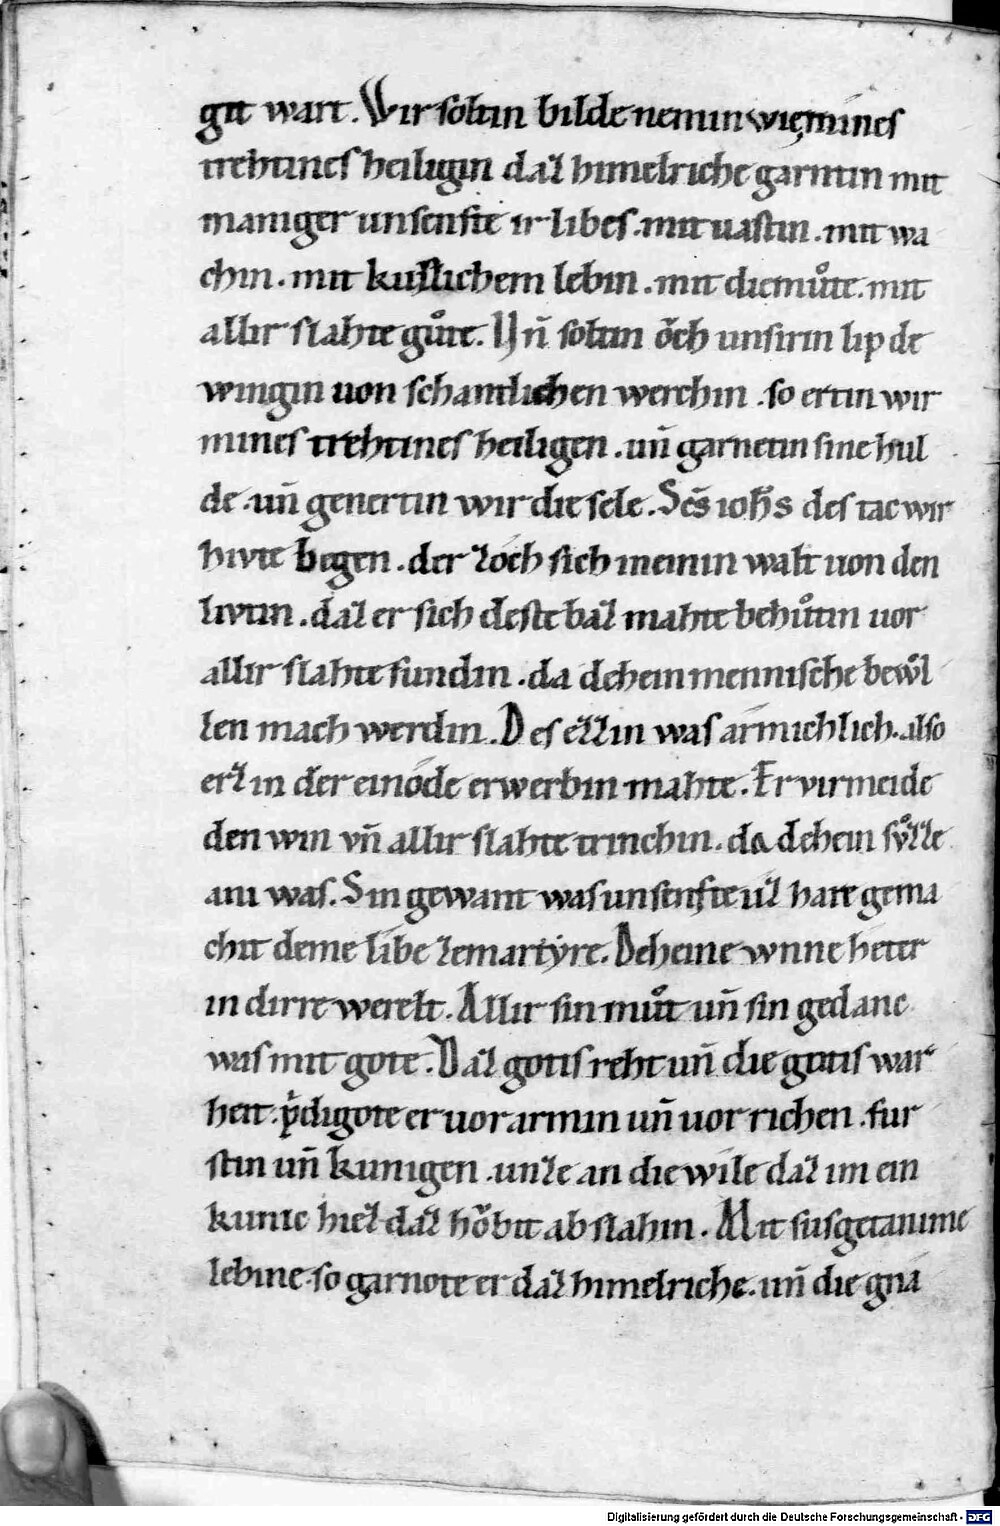 git wart. Wir soltin bilde nemin wie mines
trehtines heiligin daz himelriche garntin mit
maniger unsenfte ir libes. mit uastin. mit wa
chin. mit kuslichem lebin. mit diemůte. mit
allir slahte gůte. Uñ soltin ǒch unsirin lip de
wingin uon schantlichen werchin. so ertin wir
mines trehtines heiligen. uñ garnetin sine hul
de. uñ genertin wir die sele. Scs̄ ioħs des tac wir
hivte begen. der zoch sich meinin walt uon den
livtin. daz er sich deste baz mahte behůtin uor
allir slahte sundin. da dehein mennische bewol
len mach werdin. Des ezzin was armichlich. also
erz in der einode erwerbin mahte. Er virmeide
den win vñ allir slahte trinchin. da dehein sv̊zze
ani was. Sin gewant was unsenfte uz hare gema
chit deme libe ze martyre. Deheine wnne heter
in dirre werelt. Allir sin můt uñ sin gedanc
was mit gote. Daz gotis reht uñ die gotis war
heit. p̄digote er uor armin uñ uor richen. fur
stin uñ kunigen. unze an die wile daz im ein
kunic hiez daz hǒbit abslahin. Mit susgetanime
lebine. so garnote er daz himelriche. uñ die gna
Digitalisierung gefördert durch die Deutsche Forschungsgemeinschaft - DFG